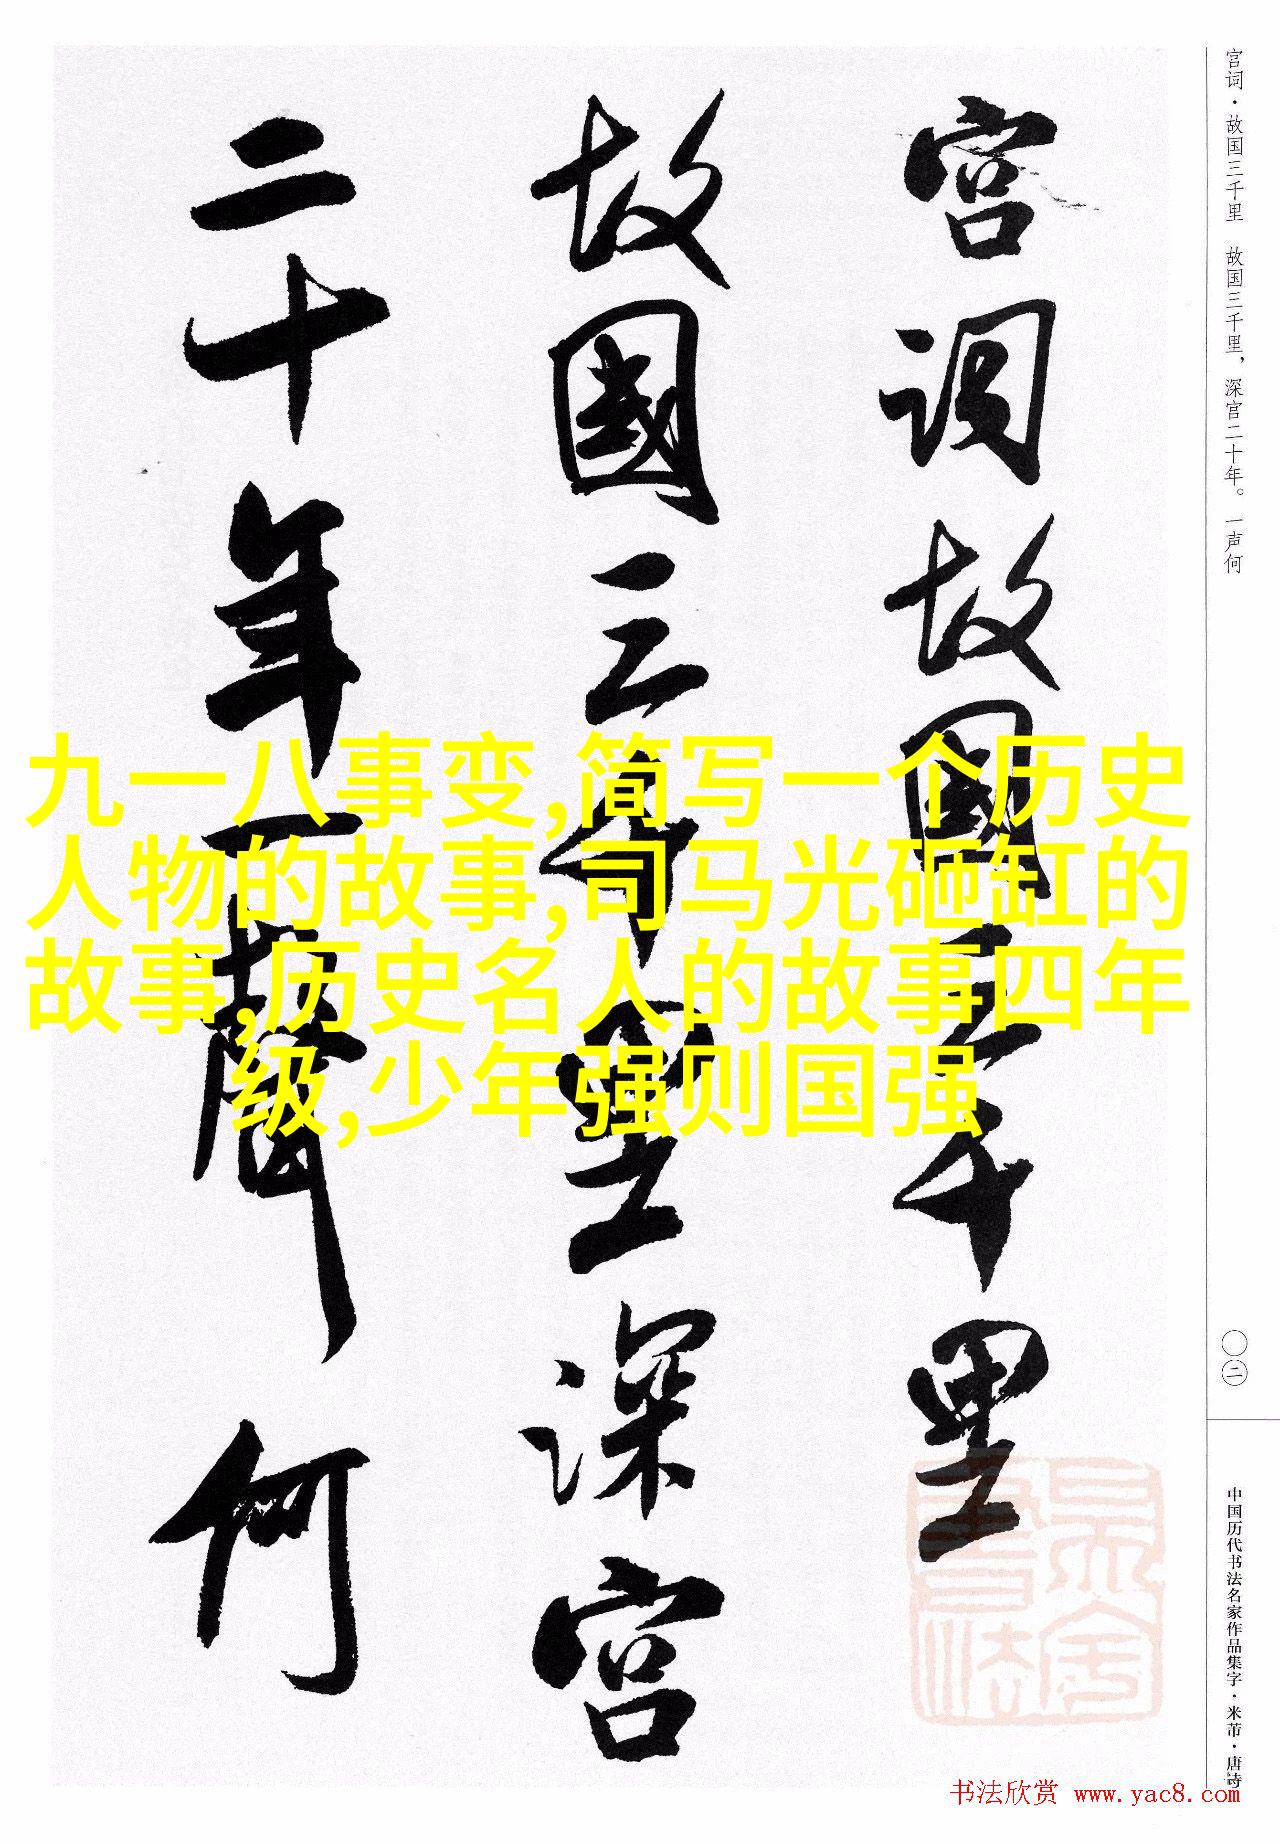 宫词·故国三千里　故国三千里，深宫二十年。一声何
宫词故国三千里
故國三千里深宫
二十年一聲何
九一八事变,简写一个历史
人物的故事,司马光砸缸的
故事,历史名人的故事四年
级,少年强则国强
〇二
中国历代书法名家作品集字·米芾·唐诗
书法欣赏 www.yac8.com